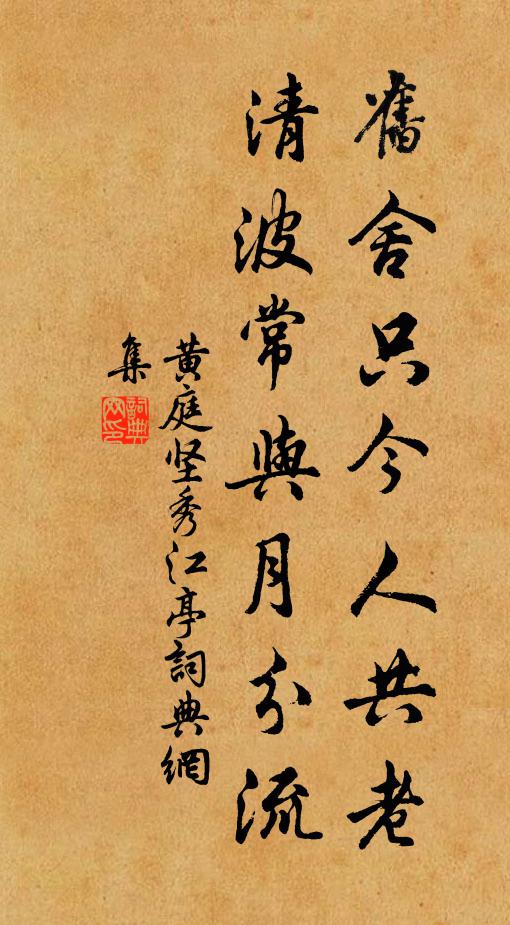 舊舍只今人共老
清波常與月分流
黄庭坚秀江亭詞典網
集
詞典網印